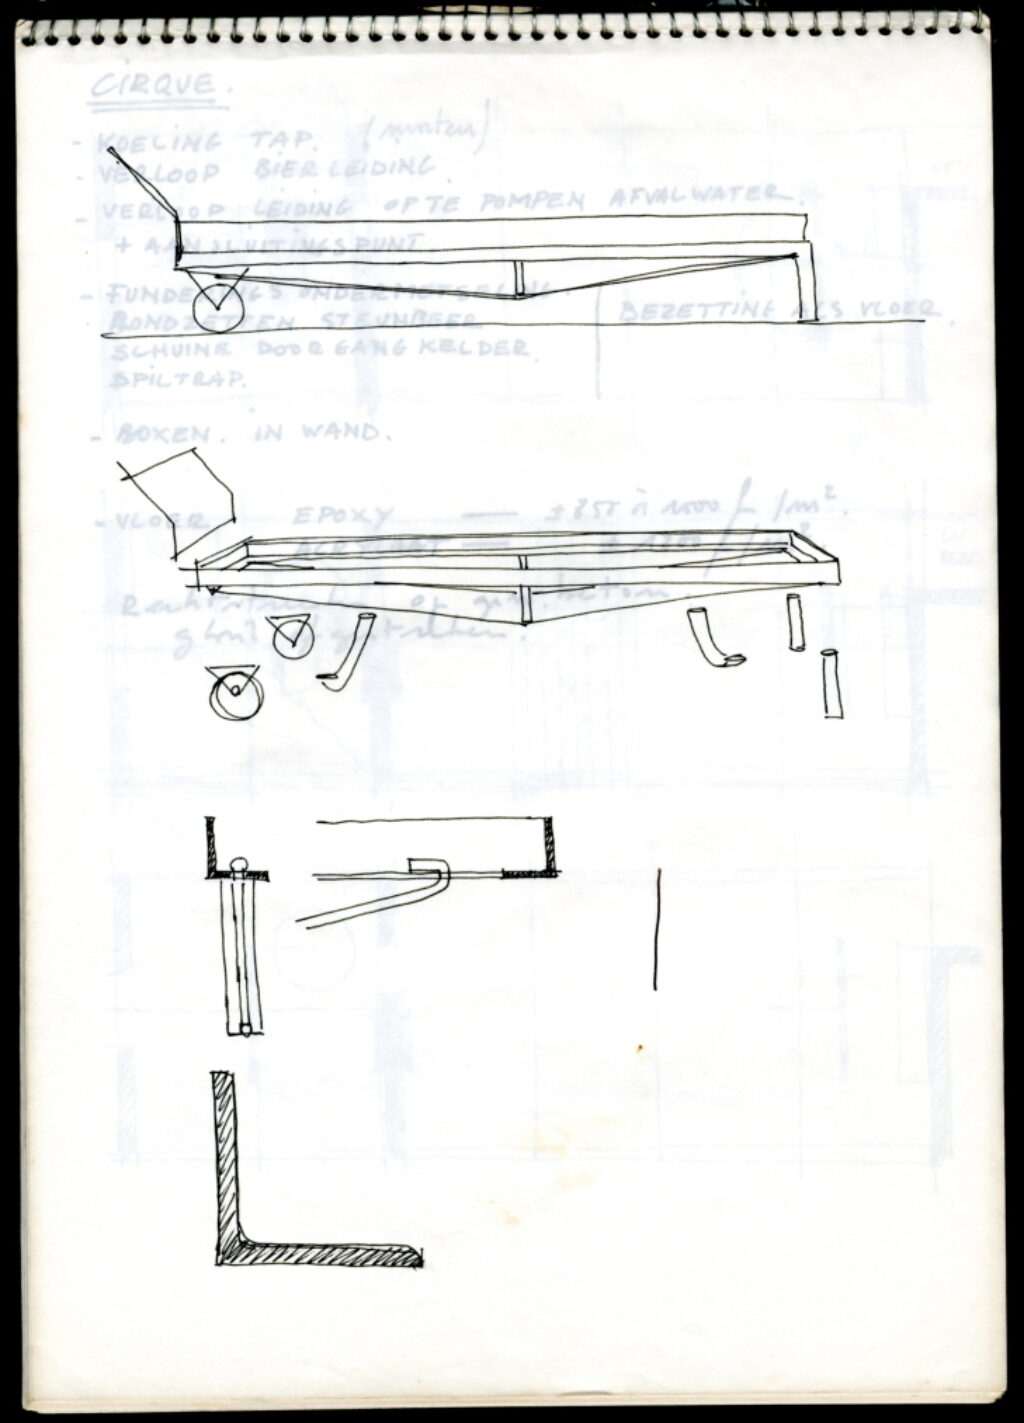 CIRQUE.
- KOELING TAP.
- VERLOOP BIERLEIDING.
- VERLOOP LEIDING OP TE POMPEN AFVALWATER.
+ AANSLUITINGSPUNT.
- FUNDERINGS ONDERMETSELING.
RONDZETTEN STEUNBEER
SCHUINE DOORGANG KELDER.
SPILTRAP.
BEZETTING ALS VLOER.
- BOXEN. IN WAND.
- VLOER EPOXY — ± 850 à 1000 /m².
ACRYLAAT — ± 1200 /m²
Rechtstreeks op beton.